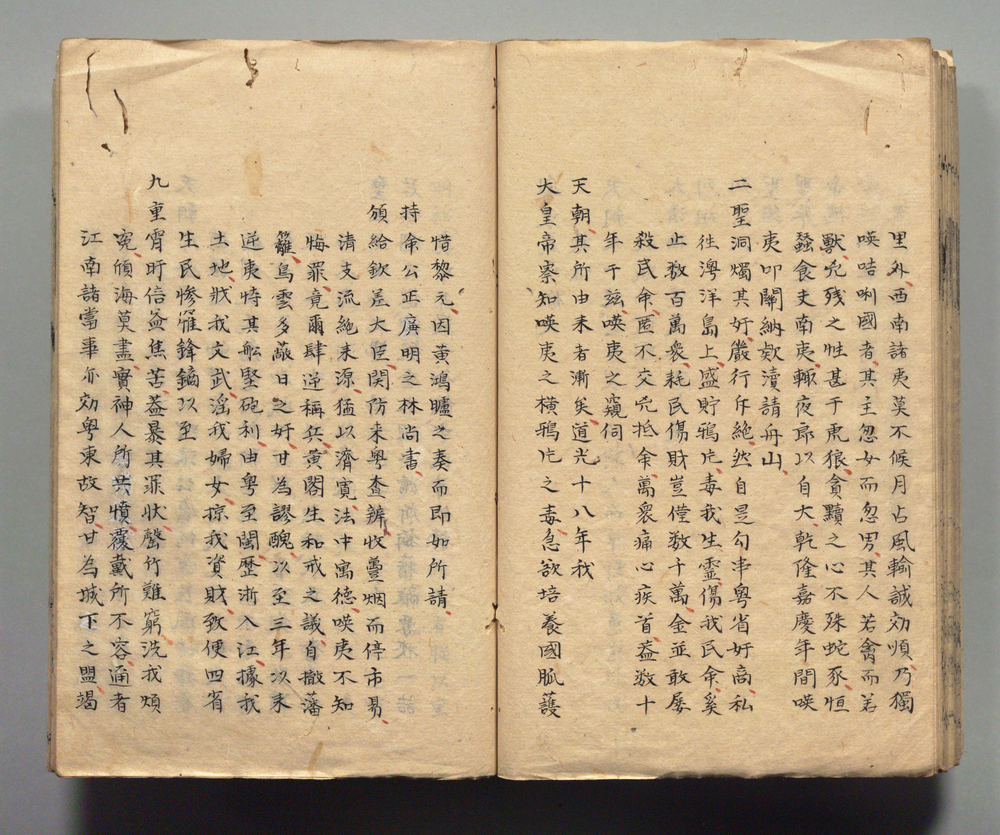 里外西南諸夷莫不候月占風輸誠効順乃獨
𠸄咭唎國者其主忽女而忽男其人若禽而若
獸兇残之性甚于虎狼貪黷之心不殊蛇豕恒
蠶食文南夷輙夜郎以自大乾隆嘉慶年間𠸄
夷叩關納欵瀆請舟山
二聖洞燭其奸嚴行斥絶然自是勾串粤省奸商私
徃澳洋島上盛貯鴉片毒我生靈傷我民命奚
止数百萬衆耗民傷財豈僅数千萬金並敢屡
殺民命匿不交兇抵命萬衆痛心疾首葢数十
年于兹𠸄夷之窺伺
天朝其所由来者漸矣道光十八年我
大皇帝察知𠸄夷之横鴉片之毒急欲培養國脈護
惜黎元因黄鴻臚之奏而即如所請
持命公正廉明之林尚書
頒給欽差大臣関防来粤查辦收疊烟而停市易
清支流絶来源猛以濟寛法中寓德𠸄夷不知
悔罪竟爾肆逆稱兵黄閣生和戎之議自撤藩
籬烏雲多蔽日之奸甘為謬醜以至三年以来
逆夷恃其船堅砲利由粤至閩歷浙入江據我
土地戕我文武淫我婦女掠我資財致使四省
生民慘罹鋒鏑以至
九重宵旰倍益焦苦葢暴其罪狀罄竹難窮洗我煩
寃傾海莫盡實神人所共憤覆戴所不容通者
江南諸當事亦効粤東故智甘為城下之盟竭